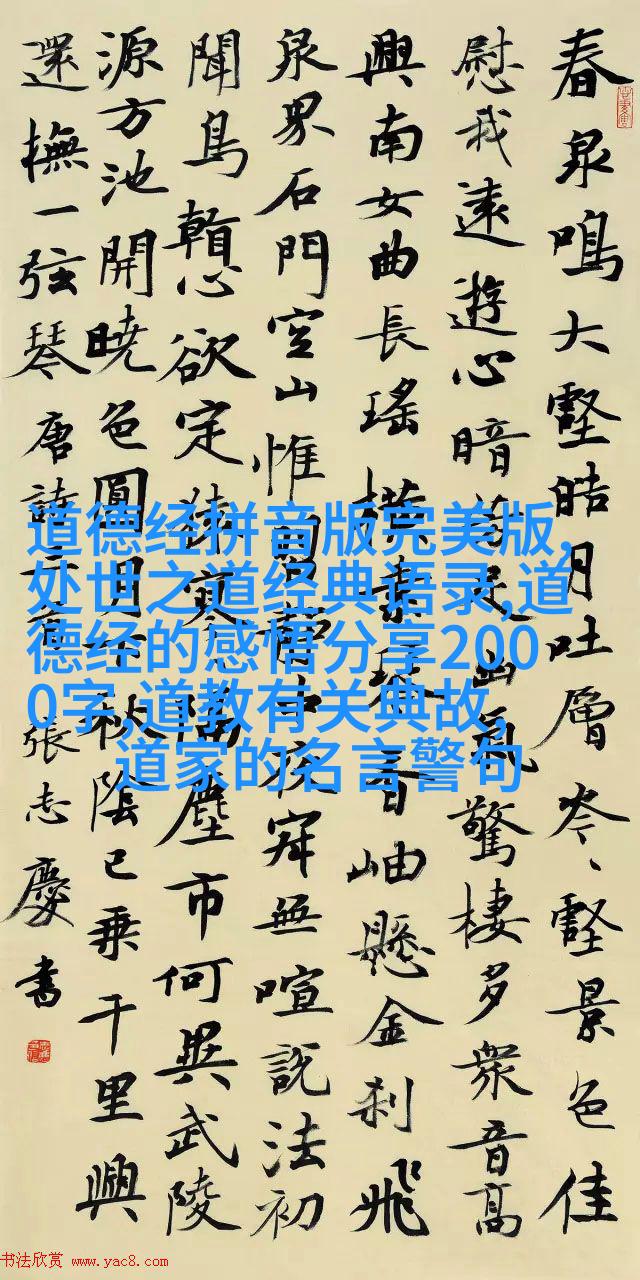 春泉鳴大壑皓月吐層岑、壑景色佳
慰我遠遊心暗芳足幽氣驚棲多衆音高
興南女曲長瑤橫素琴香岫懸金刹飛
泉界石門空山惟習靜中夜寂無喧說法初
聞鳥心欲定猿寒隔塵市何異武陵
源方池開曉色圓月下秋陰已乘千里興
還撫一弦琴 唐詩二首 張志慶書
道德经拼音版完美版,
处世之道经典语录,道
德经的感悟分享200
0字,道教有关典故,
道家的名言警句
书法欣赏 www.yac8.com